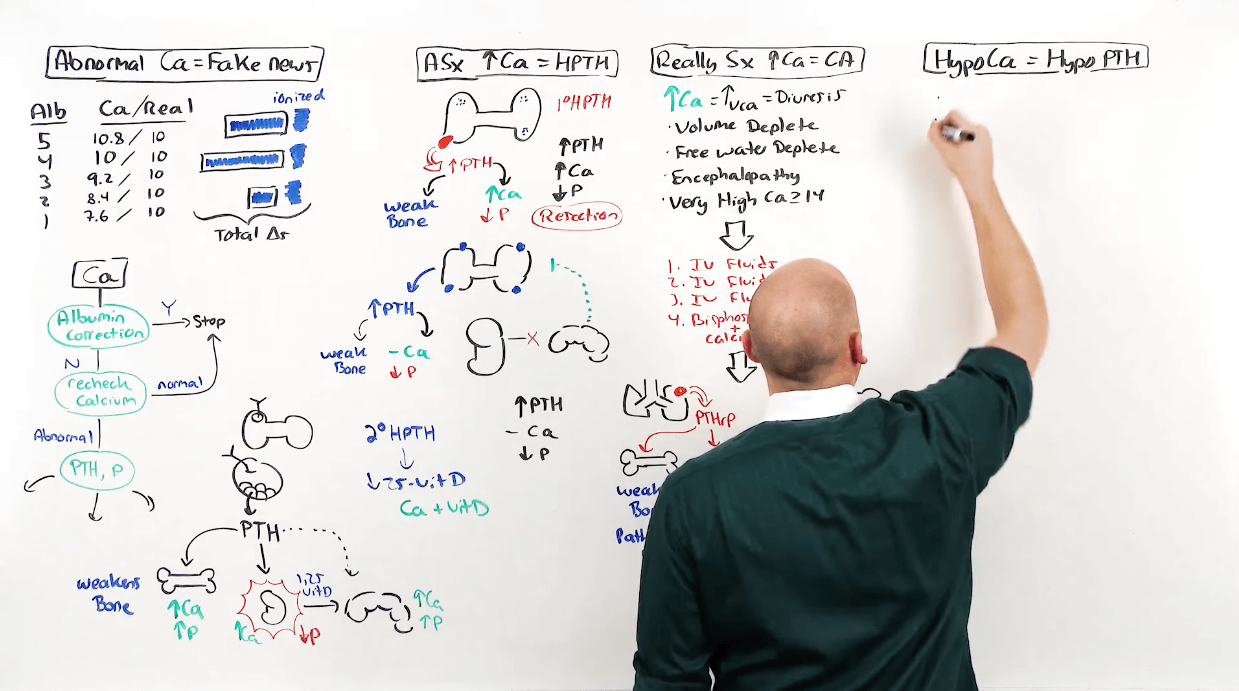 Abnormal Ca = Fake news
Alb Ca/Real ionized
5 10.8 / 10
4 10 / 10
3 9.2 / 10
2 8.4 / 10
1 7.6 / 10
Total Δs
Ca
Albumin
Correction
Y
Stop
N
recheck
Calcium
normal
Abnormal
PTH, P
PTH
weakens
Bone
↑Ca
↑P
↑Ca
↓P
1,25
VitD
↑Ca
↑P
ASx ↑Ca = HPTH
1° HPTH
↑PTH
weak
Bone
↑Ca
↓P
↑PTH
↑Ca
↓P
Resection
↑PTH
weak
Bone
- Ca
↓P
X
2° HPTH
↓25-VitD
Ca + VitD
↑PTH
- Ca
↓P
Really Sx ↑Ca = CA
↑Ca = ↑UCa = Diuresis
· Volume Deplete
· Free water Deplete
· Encephalopathy
· Very High Ca ≥ 14
1. IV Fluids
2. IV Flu
3. IV Flu
4. Bisphos
+
calci
PTHrP
weak
Bo
Path
HypoCa = Hypo PTH